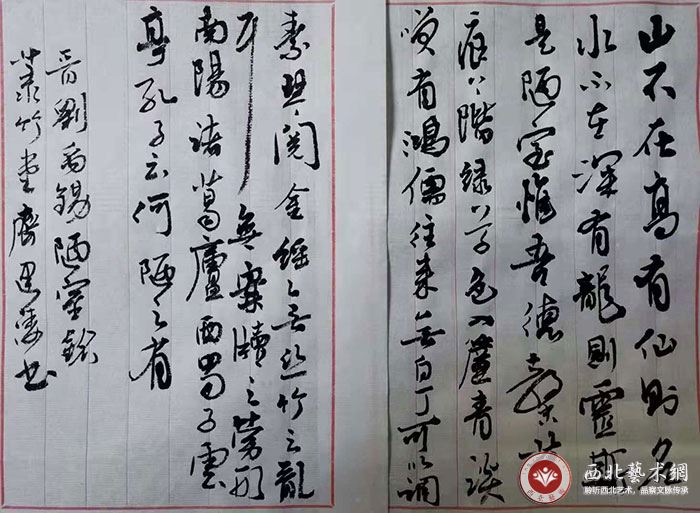 山不在高有仙則名
水不在深有龍則靈斯
是陋室惟吾德馨苔
痕上階綠草色入簾青談
笑有鴻儒往來無白丁可以調
素琴閱金經無絲竹之亂
耳無案牘之勞形
南陽諸葛廬西蜀子雲
亭孔子云何陋之有
晉劉禹錫陋室銘
竹堂書
西北藝術網
聆听西北艺术，品察文脉传承